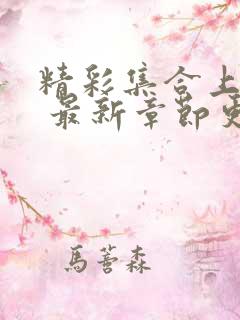 精彩集合上
最新章節更
馬蓍森